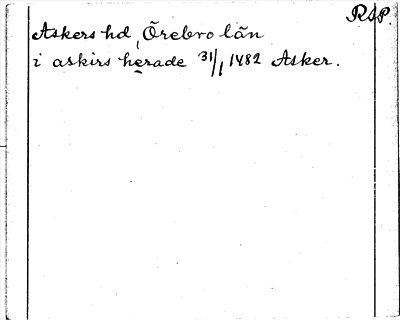 RSP.
Askers hd, Örebro län
i askirs herade 31/1 1482 Asker.